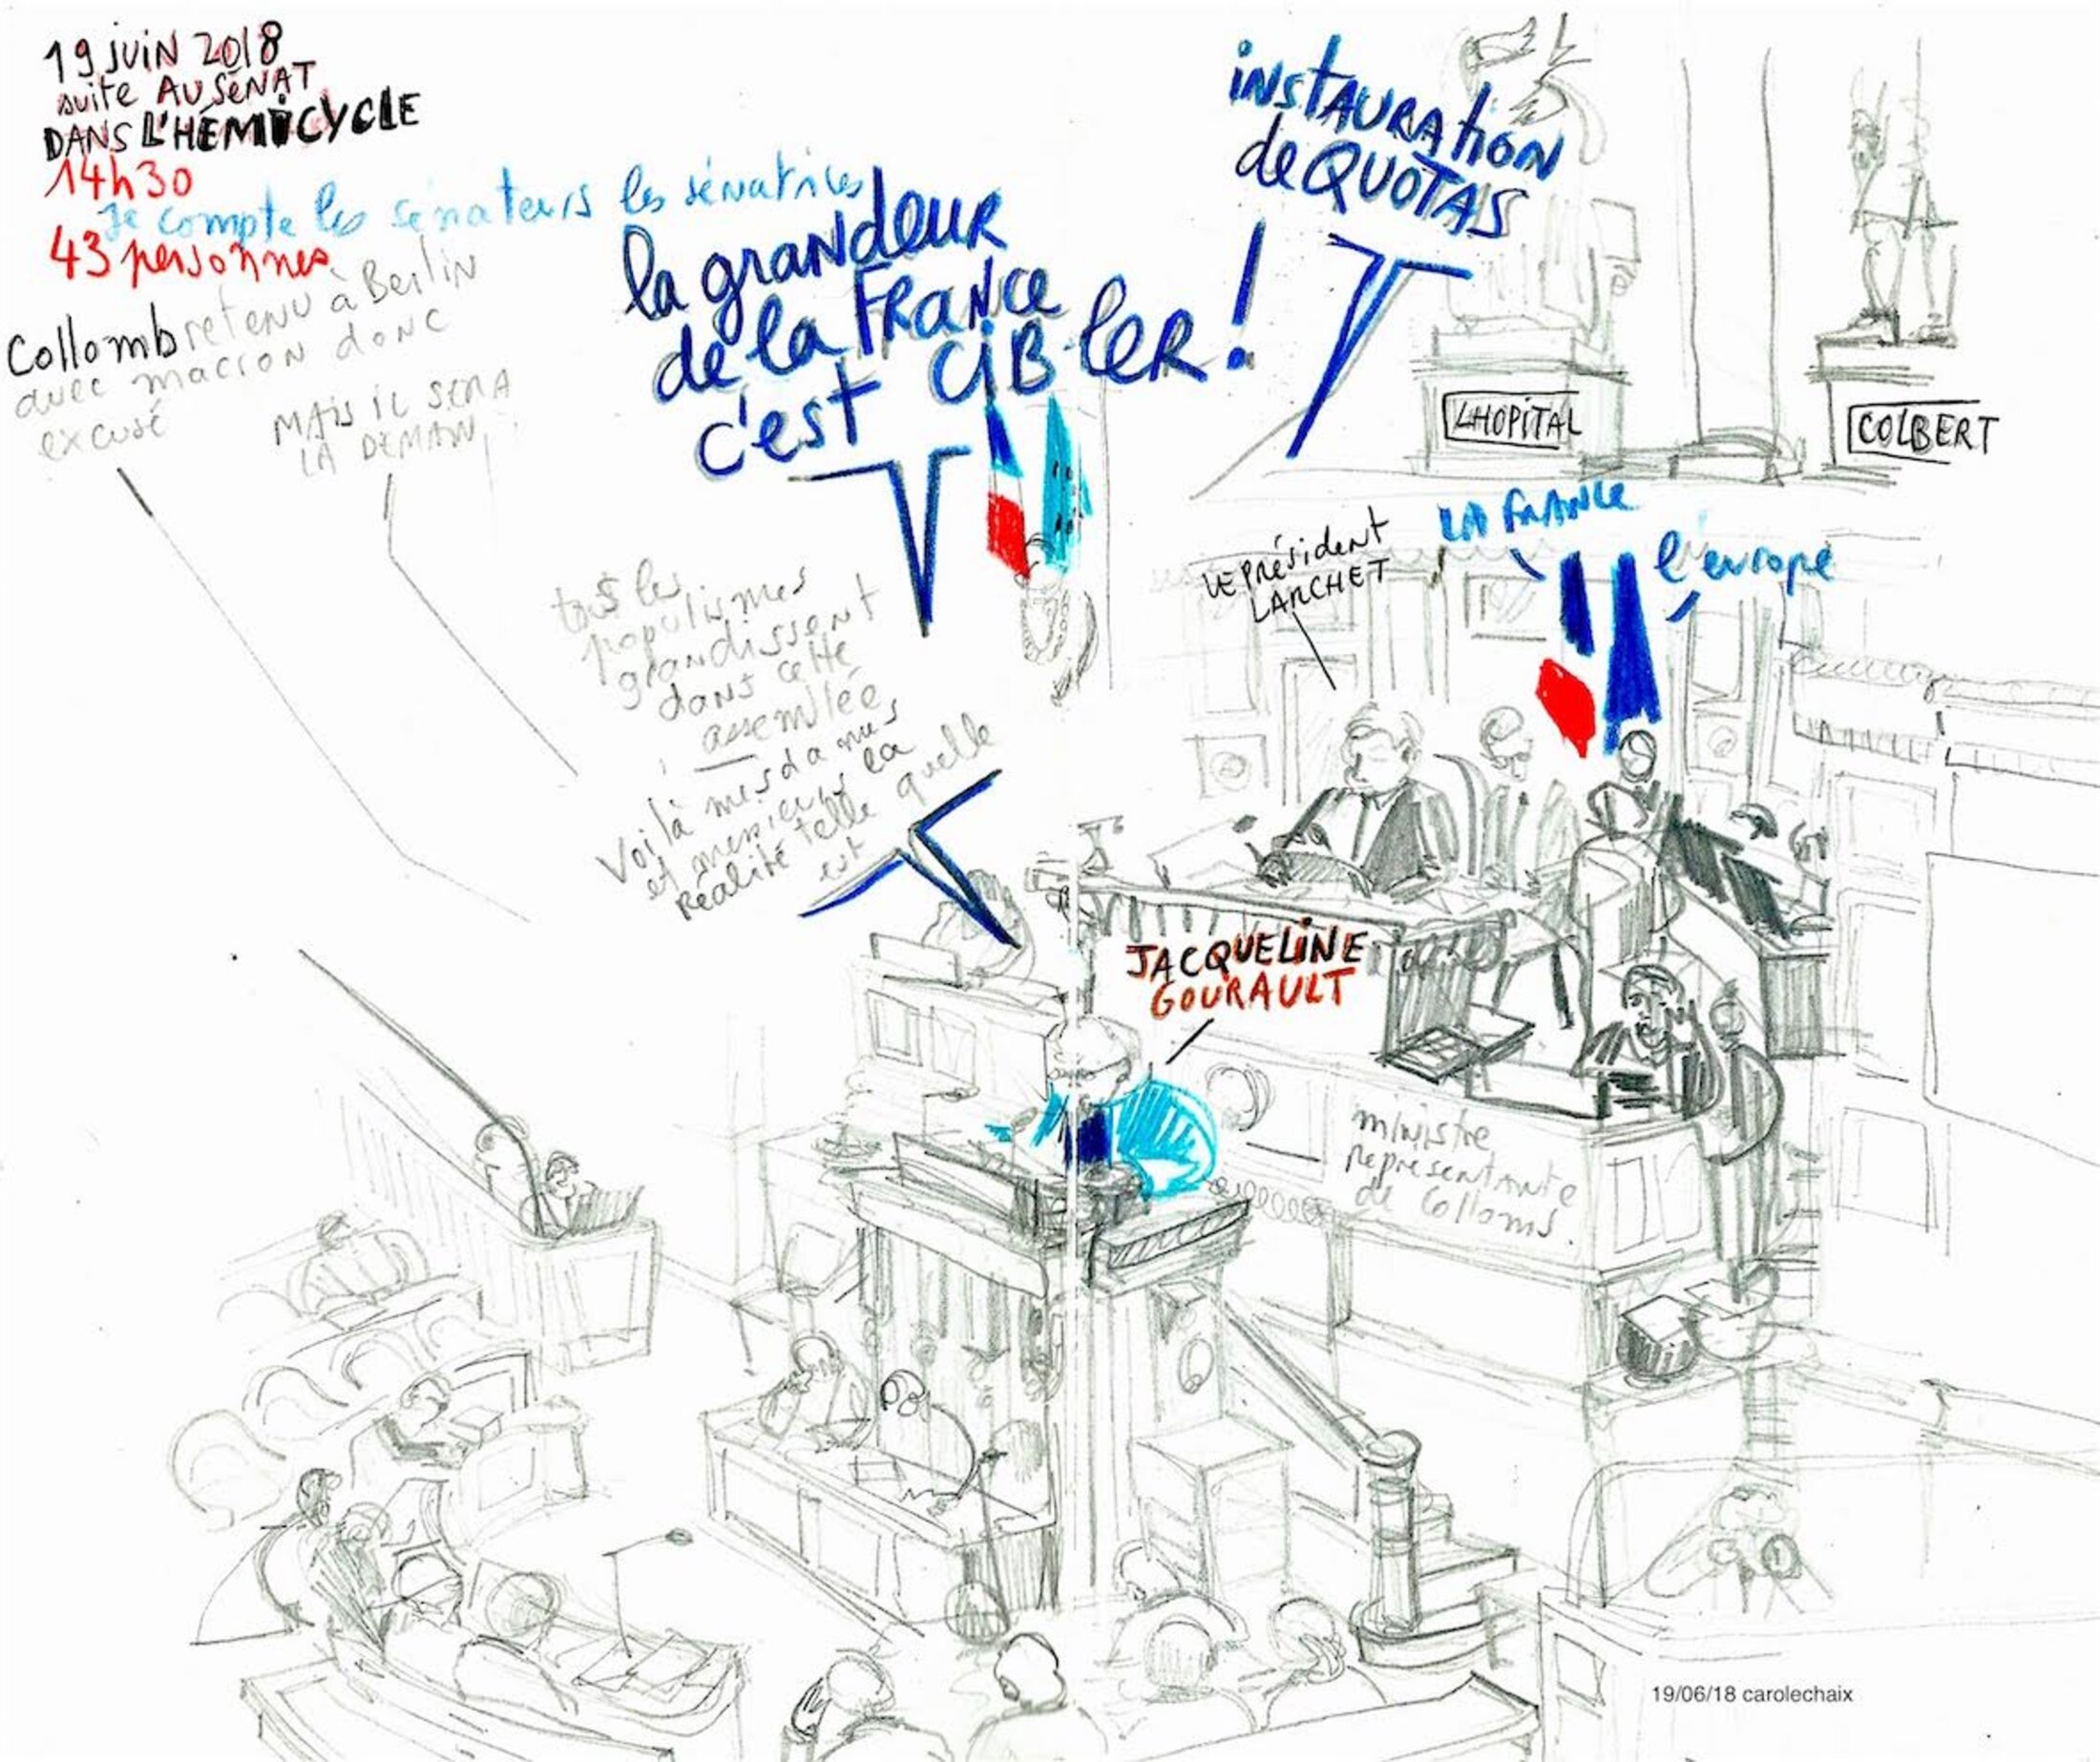 19 juin 2018
suite AU SÉNAT
DANS L'HÉMICYCLE
14h30
Je compte les sénateurs les sénatrices
43 personnes
Collomb retenu à Berlin
avec macron donc
excusé
MAIS IL SERA
LÀ DEMAIN
la grandeur
de la FRANCE
c'est CIBLER !
instauration
de QUOTAS
LHOPITAL
COLBERT
LA FRANCE
l'europe
LE Président
LARCHET
tous les
populismes
grandissent
dans cette
assemblée
Voilà mesdames
et messieurs la
Réalité telle quelle
est
JACQUELINE
GOURAULT
ministre
représentante
de Collomb.
19/06/18 carolechaix